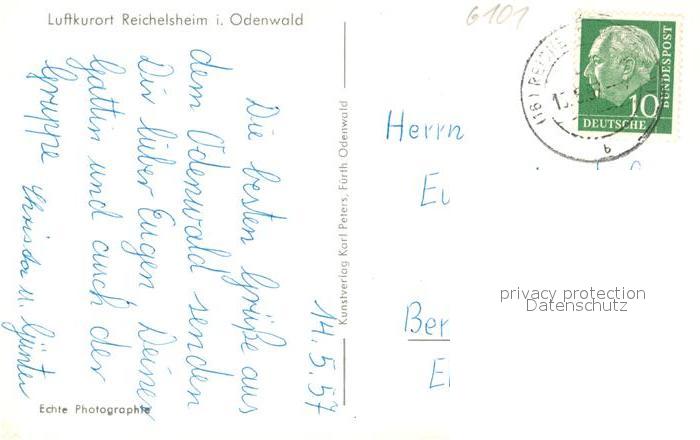 Luftkurort Reichelsheim i. Odenwald
6101
14.5.57
Die besten Grüße aus
dem Odenwald senden
Dir lieber Eugen Deiner
Gattin und auch der
Gruppe Christa u. Günter
Echte Photographie
Kunstverlag Karl Peters, Fürth Odenwald
(16) REICHE
b
10
DEUTSCHE
BUNDESPOST
Herrn
Eu
Ber
privacy protection
Datenschutz